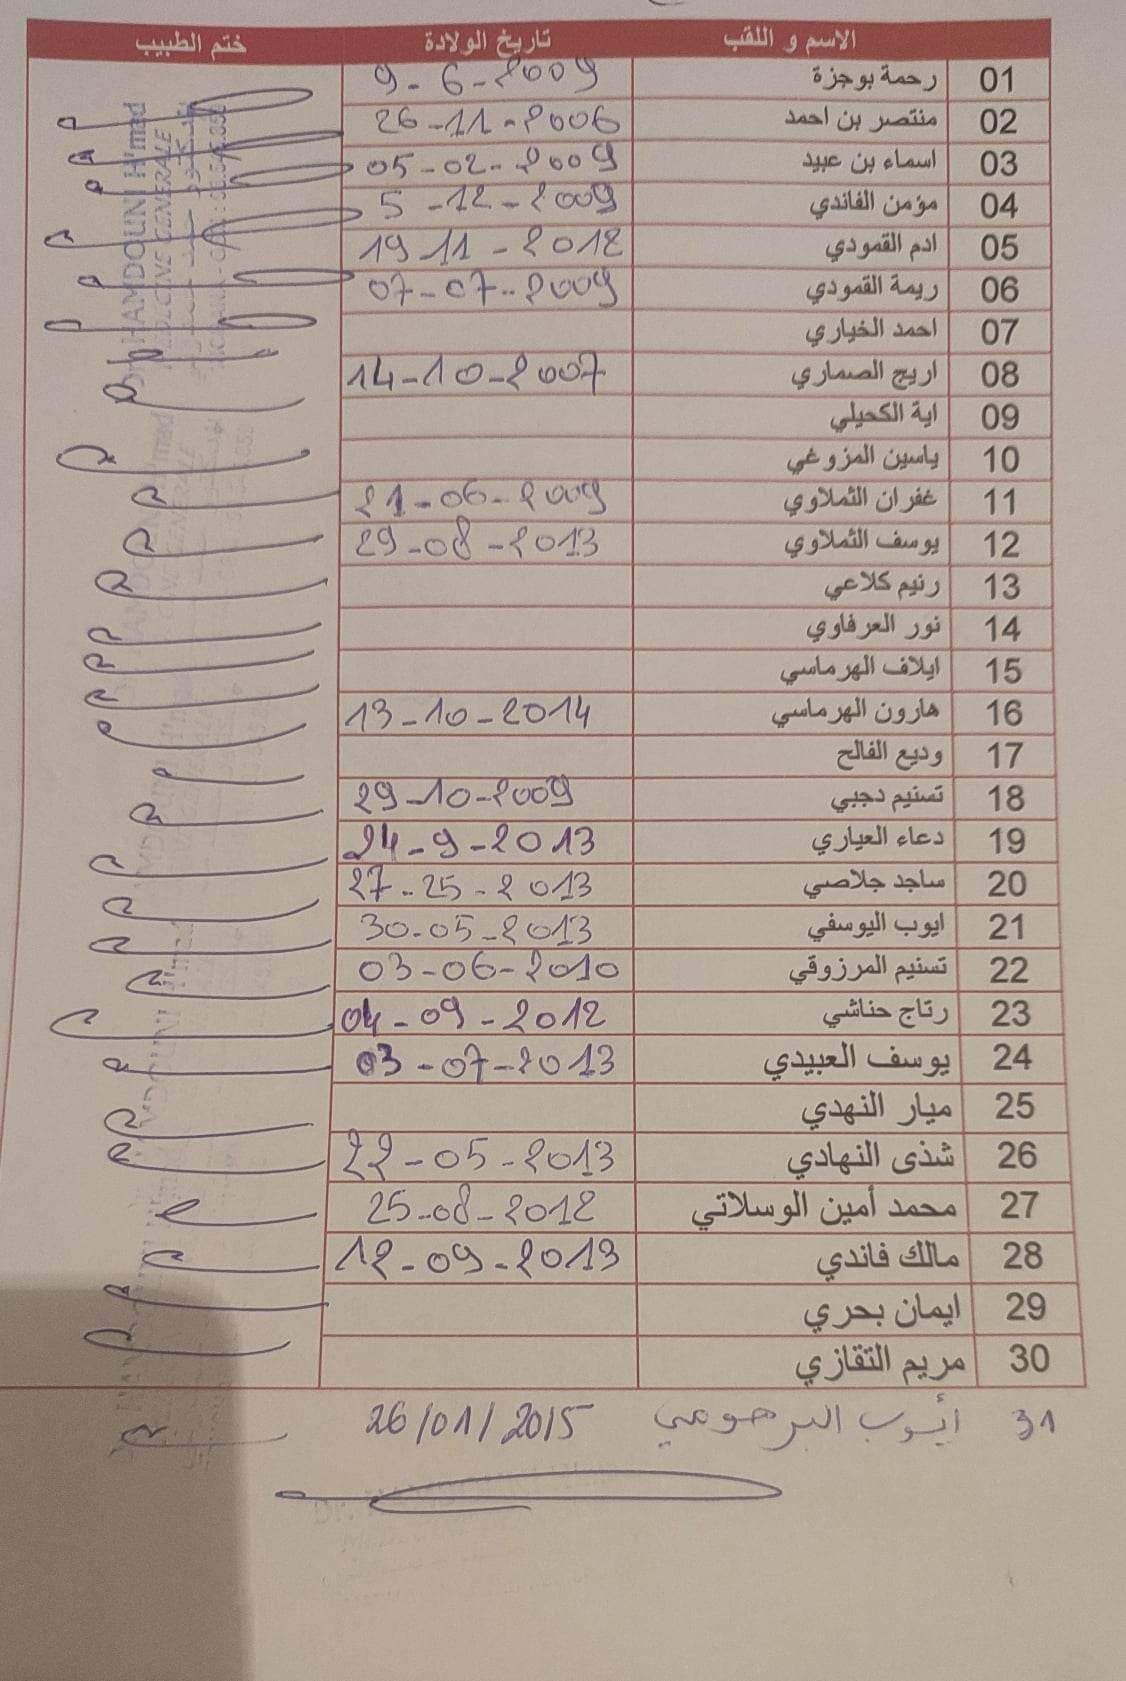 الاسم و اللقب تاريخ الولادة ختم الطبيب
01 رحمة بوجزة 9-6-2009
02 منتصر بن احمد 26-11-2006
03 اسماء بن عبيد 05-02-2009
04 مؤمن الفاندي 5-12-2009
05 ادم القمودي 19-11-2012
06 ريمة القمودي 07-07-2009
07 احمد الخياري
08 اريج الصماري 14-10-2007
09 اية الكحيلي
10 ياسين المزوغي
11 غفران الثملاوي 21-06-2009
12 يوسف الثملاوي 29-08-2013
13 رنيم كلاعي
14 نور العرفاوي
15 ايلاف الهرماسي
16 هارون الهرماسي 13-10-2014
17 وديع الفالح
18 تسنيم دجبي 29-10-2009
19 دعاء العياري 24-9-2013
20 ساجد جلاصي 27-25-2013
21 ايوب اليوسفي 30-05-2013
22 تسنيم المرزوقي 03-06-2010
23 رتاج حناشي 04-09-2012
24 يوسف العبيدي 03-07-2013
25 ميار النهدي
26 شذى النهادي 22-05-2013
27 محمد أمين الوسلاتي 25-08-2012
28 مالك فاندي 12-09-2013
29 ايمان بحري
30 مريم التقازي
31 أيوب البرهومي 26/01/2015
HAMDOUNI H'med
GENERALE